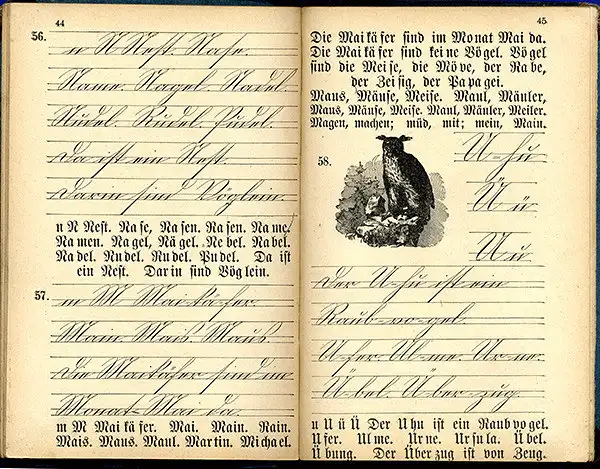 44
56.
n N Nest. Nase.
Name. Nagel. Nadel.
Nudel. Rudel. Pudel.
Da ist ein Nest.
Darin sind Vöglein.
n N Nest. Na se, Na sen. Ra sen. Na me.
Na men. Na gel, Nä gel. Ne bel. Na bel.
Na del. Nu del. Ru del. Pu del. Da ist
ein Nest. Dar in sind Vög lein.
57.
m M Mai-kä-fer.
Main. Mais. Maus.
Die Maikäfer sind im
Monat Mai da.
m M Mai kä fer. Mai. Main. Rain.
Mais. Maus. Maul. Mar tin. Mi cha el.
45
Die Mai kä fer sind im Mo nat Mai da.
Die Mai kä fer sind kei ne Vö gel. Vö gel
sind die Mei se, die Mö ve, der Ra be,
der Zei sig, der Pa pa gei.
Maus, Mäuse, Meise. Maul, Mäuler,
Maus, Mäuse, Meise. Maul, Mäuler, Meiler.
Magen, machen; müd, mit; mein, Main.
58.
U-hu
Ü ü
U u
Der U-hu ist ein
Raub-vo-gel.
U-fer. Ul-me. Ur-ne.
Ü-bel. Ü-ber-zug.
u U ü Ü Der U hu ist ein Raub vo gel.
U fer. Ul me. Ur ne. Ur su la. Ü bel.
Ü bung. Der Ü ber zug ist von Zeug.